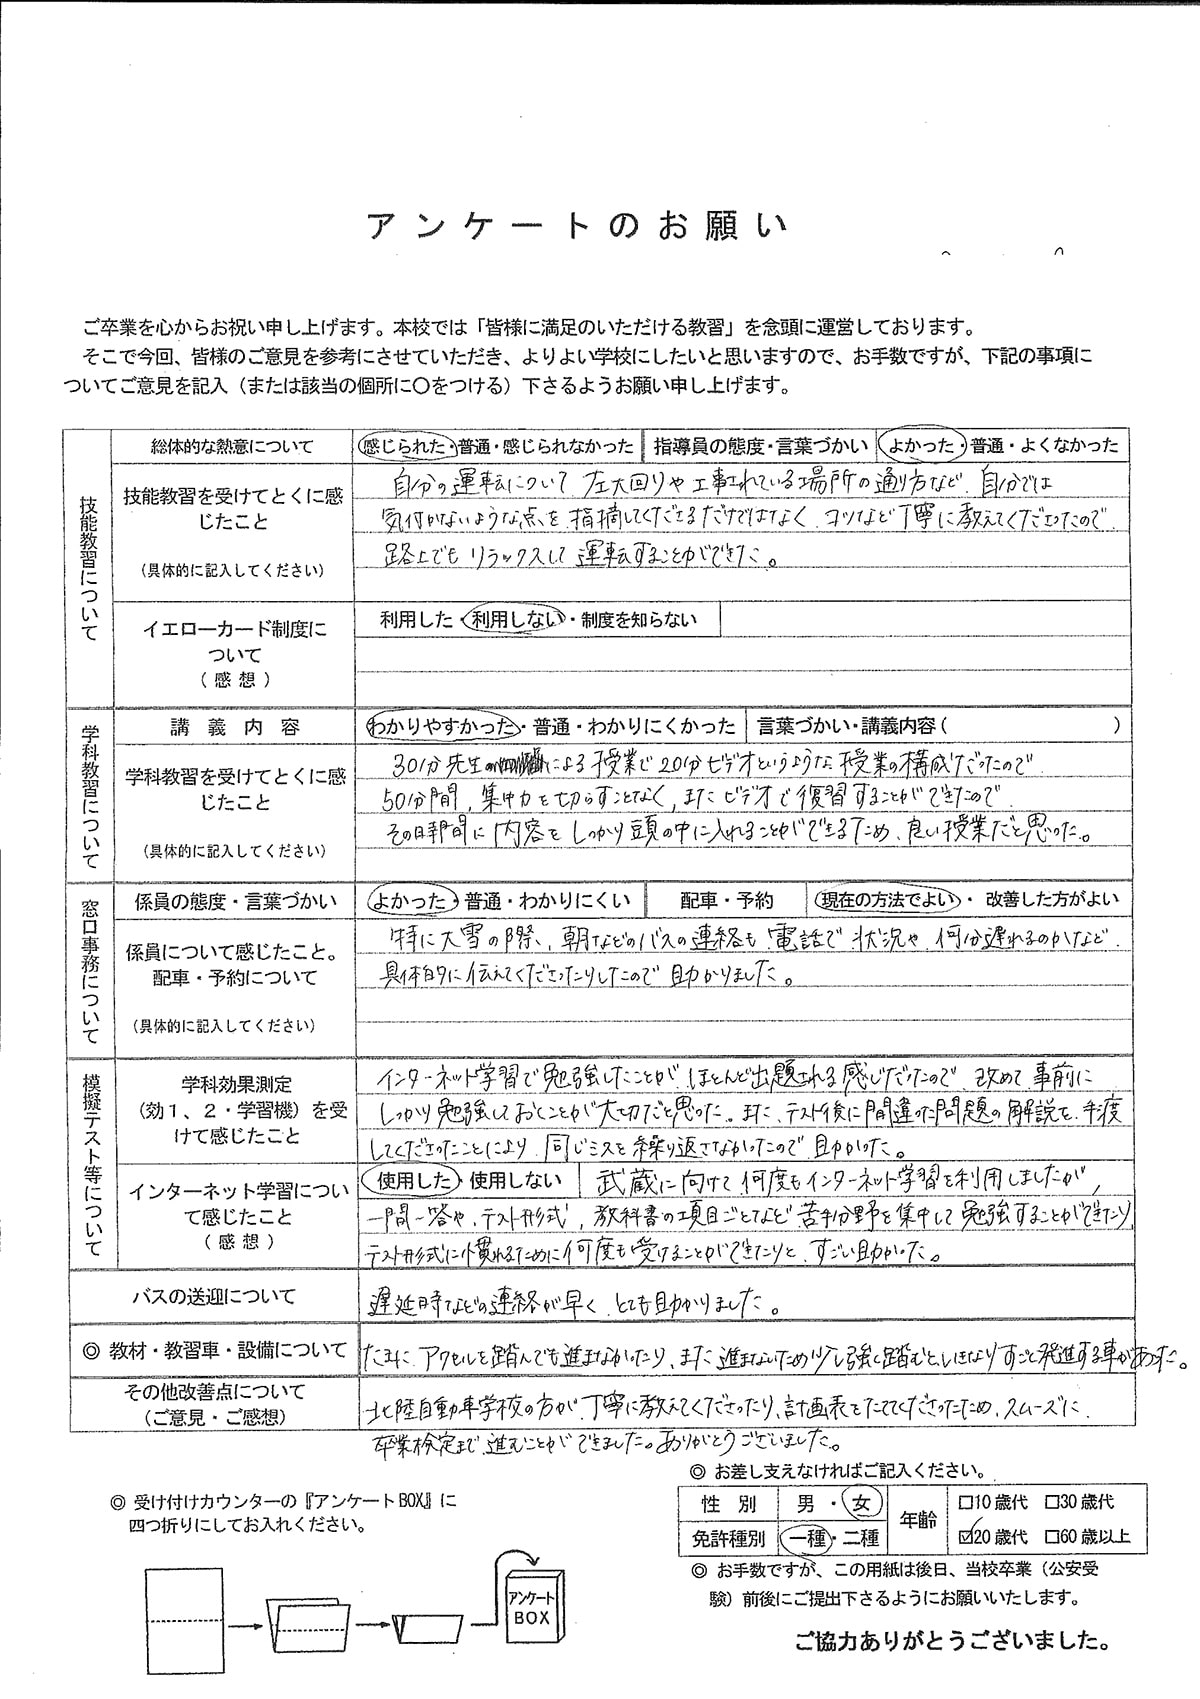 アンケートのお願い
ご卒業を心からお祝い申し上げます。本校では「皆様に満足のいただける教習」を念頭に運営しております。
そこで今回、皆様のご意見を参考にさせていただき、よりよい学校にしたいと思いますので、お手数ですが、下記の事項に
ついてご意見を記入（または該当の個所に〇をつける）下さるようお願い申し上げます。
技能教習について
総体的な熱意について
感じられた・普通・感じられなかった
指導員の態度・言葉づかい
よかった・普通・よくなかった
技能教習を受けてとくに感
じたこと
（具体的に記入してください）
自分の運転について 左大回りや工事されている場所の通り方など、自分では
気付かないような点、を指摘してくださるだけではなく、コツなど丁寧に教えてくださったので
路上でもリラックスして運転することができた。
イエローカード制度に
ついて
（感想）
利用した・利用しない・制度を知らない
学科教習について
講義内容
わかりやすかった・普通・わかりにくかった
言葉づかい・講義内容（ ）
学科教習を受けてとくに感
じたこと
（具体的に記入してください）
30分先生による授業で20分ビデオというような授業の構成だったので
50分間、集中力を切らすことなく、またビデオで復習することができたので
その日時間に内容をしっかり頭の中に入れることができるため、良い授業だと思った。
窓口事務について
係員の態度・言葉づかい
よかった・普通・わかりにくい
配車・予約
現在の方法でよい・改善した方がよい
係員について感じたこと。
配車・予約について
（具体的に記入してください）
特に大雪の際、朝などのバスの連絡も電話で状況や、何分遅れるのかなど
具体的に伝えてくださったりしたので助かりました。
模擬テスト等について
学科効果測定
（効１、２・学習機）を受
けて感じたこと
インターネット学習で勉強したことが、ほとんど出題される感じだったので、改めて事前に
しっかり勉強しておくことが大切だと思った。また、テスト後に間違った問題の解説を、毎度
してくださったことにより、同じミスを繰り返さなかったので助かった。
インターネット学習につい
て感じたこと
（感想）
使用した・使用しない
武蔵に向けて何度もインターネット学習を利用しましたが、
一問一答や、テスト形式、教科書の項目ごとなど苦手分野を集中して勉強することができたり
テスト形式に慣れるために何度も受けることができたりと、すごい助かった。
バスの送迎について
遅延時などの連絡が早く、とても助かりました。
◎ 教材・教習車・設備について
たまに アクセルを踏んでも進まなかったり、また進まないため少し強く踏むと、いきなりすごく発進する車があった。
その他改善点について
（ご意見・ご感想）
北陸自動車学校の方が、丁寧に教えてくださったり、計画表をたててくださったため、スムーズに
卒業検定まで進むことができました。ありがとうございました。
◎ お差し支えなければご記入ください。
性別 男・女 年齢 □10歳代 □30歳代
免許種別 一種・二種 ☑20歳代 □60歳以上
◎ 受け付けカウンターの『アンケートBOX』に
四つ折りにしてお入れください。
アンケート
BOX
◎ お手数ですが、この用紙は後日、当校卒業（公安受
験）前後にご提出下さるようにお願いいたします。
ご協力ありがとうございました。